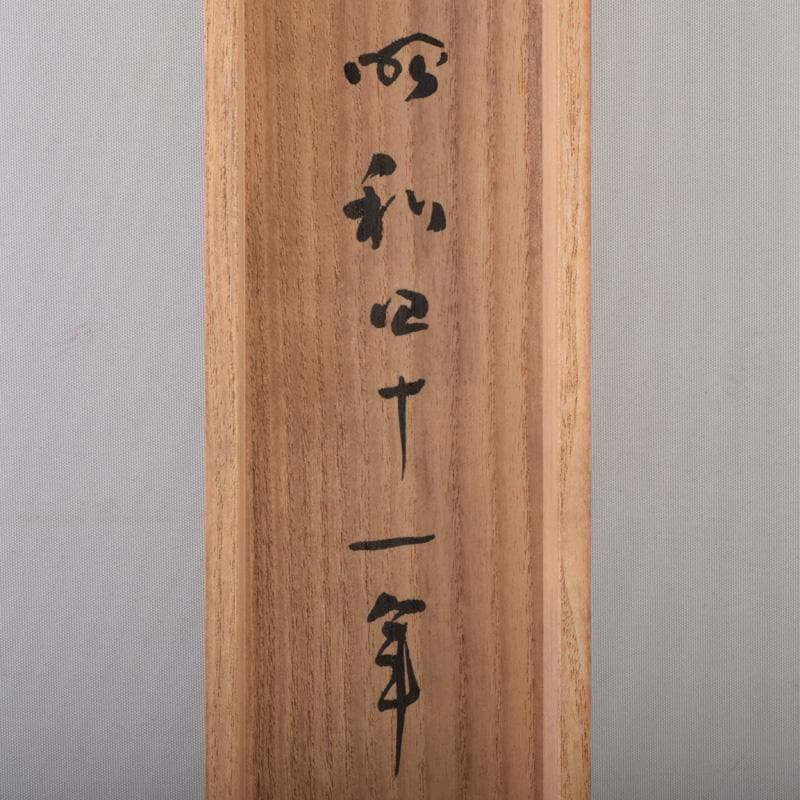 昭和四十一年